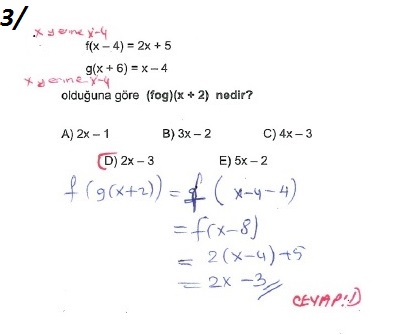 3/
x yerine x-4
f(x – 4) = 2x + 5
g(x + 6) = x – 4
x yerine x-4
olduğuna göre (fog)(x + 2) nedir?
A) 2x – 1 B) 3x – 2 C) 4x – 3
D) 2x – 3 E) 5x – 2
f(g(x+2)) = f(x-4-4)
= f(x-8)
= 2(x-4)+5
= 2x-3//
CEVAP:D